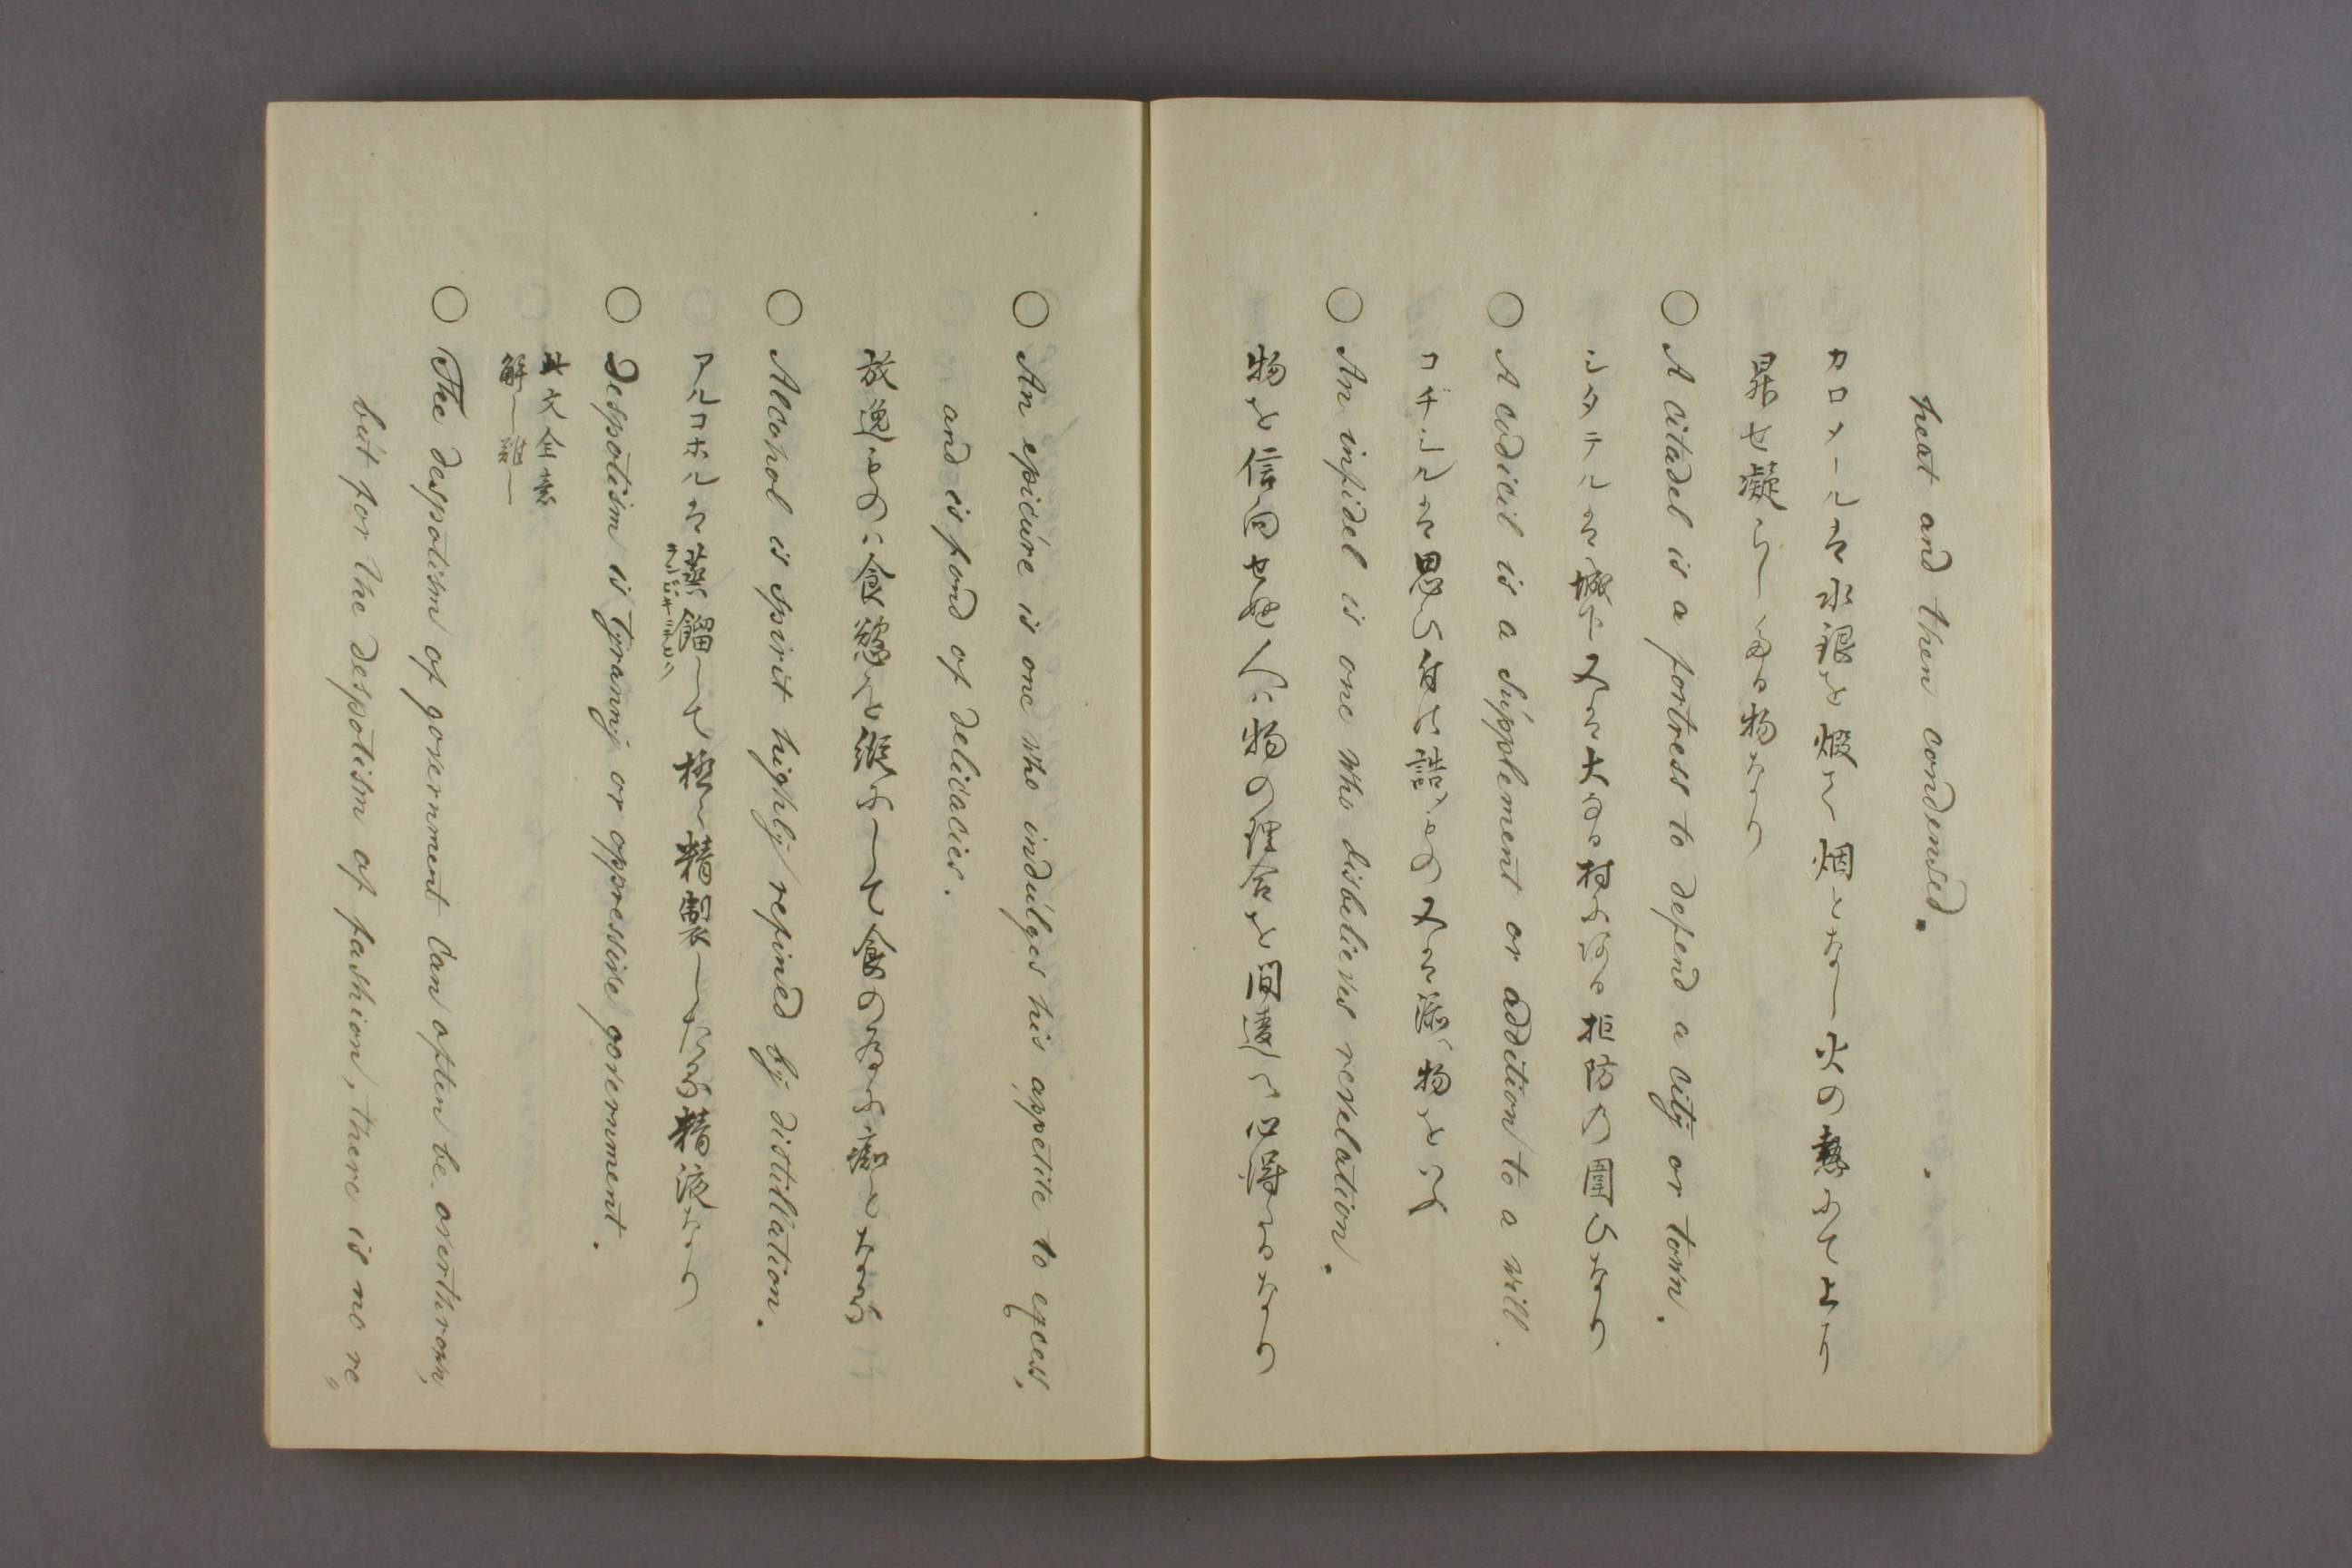 heat and then condensed.
カロメール者水銀を煆て烟となし火の熱にて上り
昇せ凝らしたる物なり
○ A citadel is a fortress to defend a city or town.
シタテル者城下又者大なる村にある拒防の圍ひなり
○ A codicil is a supplement or addition to a will.
コヂシル者思ひ付に詰めもの又者添へ物をいふ
○ An infidel is one who disbelieves revelation.
物を信向せぬ人は物の理合を間違へ心得るなり
○ An epicure is one who indulges his appetite to excess,
and is fond of delicacies.
放逸ものは食慾を縦にして食の為に痴となる
○ Alcohol is spirit highly refined by distillation.
アルコホル者蒸餾して極く精製したる精液なり
○ Despotism is tyranny or oppressive government.
此文全意
解し難し
○ The despotism of government can often be overthrown,
but for the despotism of fashion, there is no re„